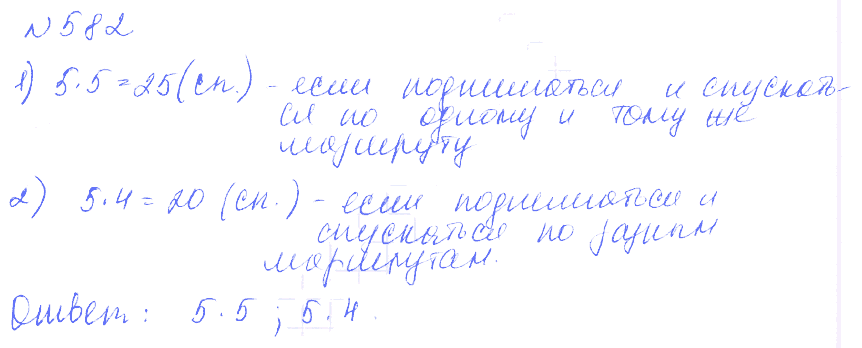 N 582
1) 5·5=25(сп.) - если подниматься и спускать-
ся по одному и тому же
маршруту
2) 5·4=20 (сп.) - если подниматься и
спускаться по разным
маршрутам.
Ответ: 5·5 ; 5·4.